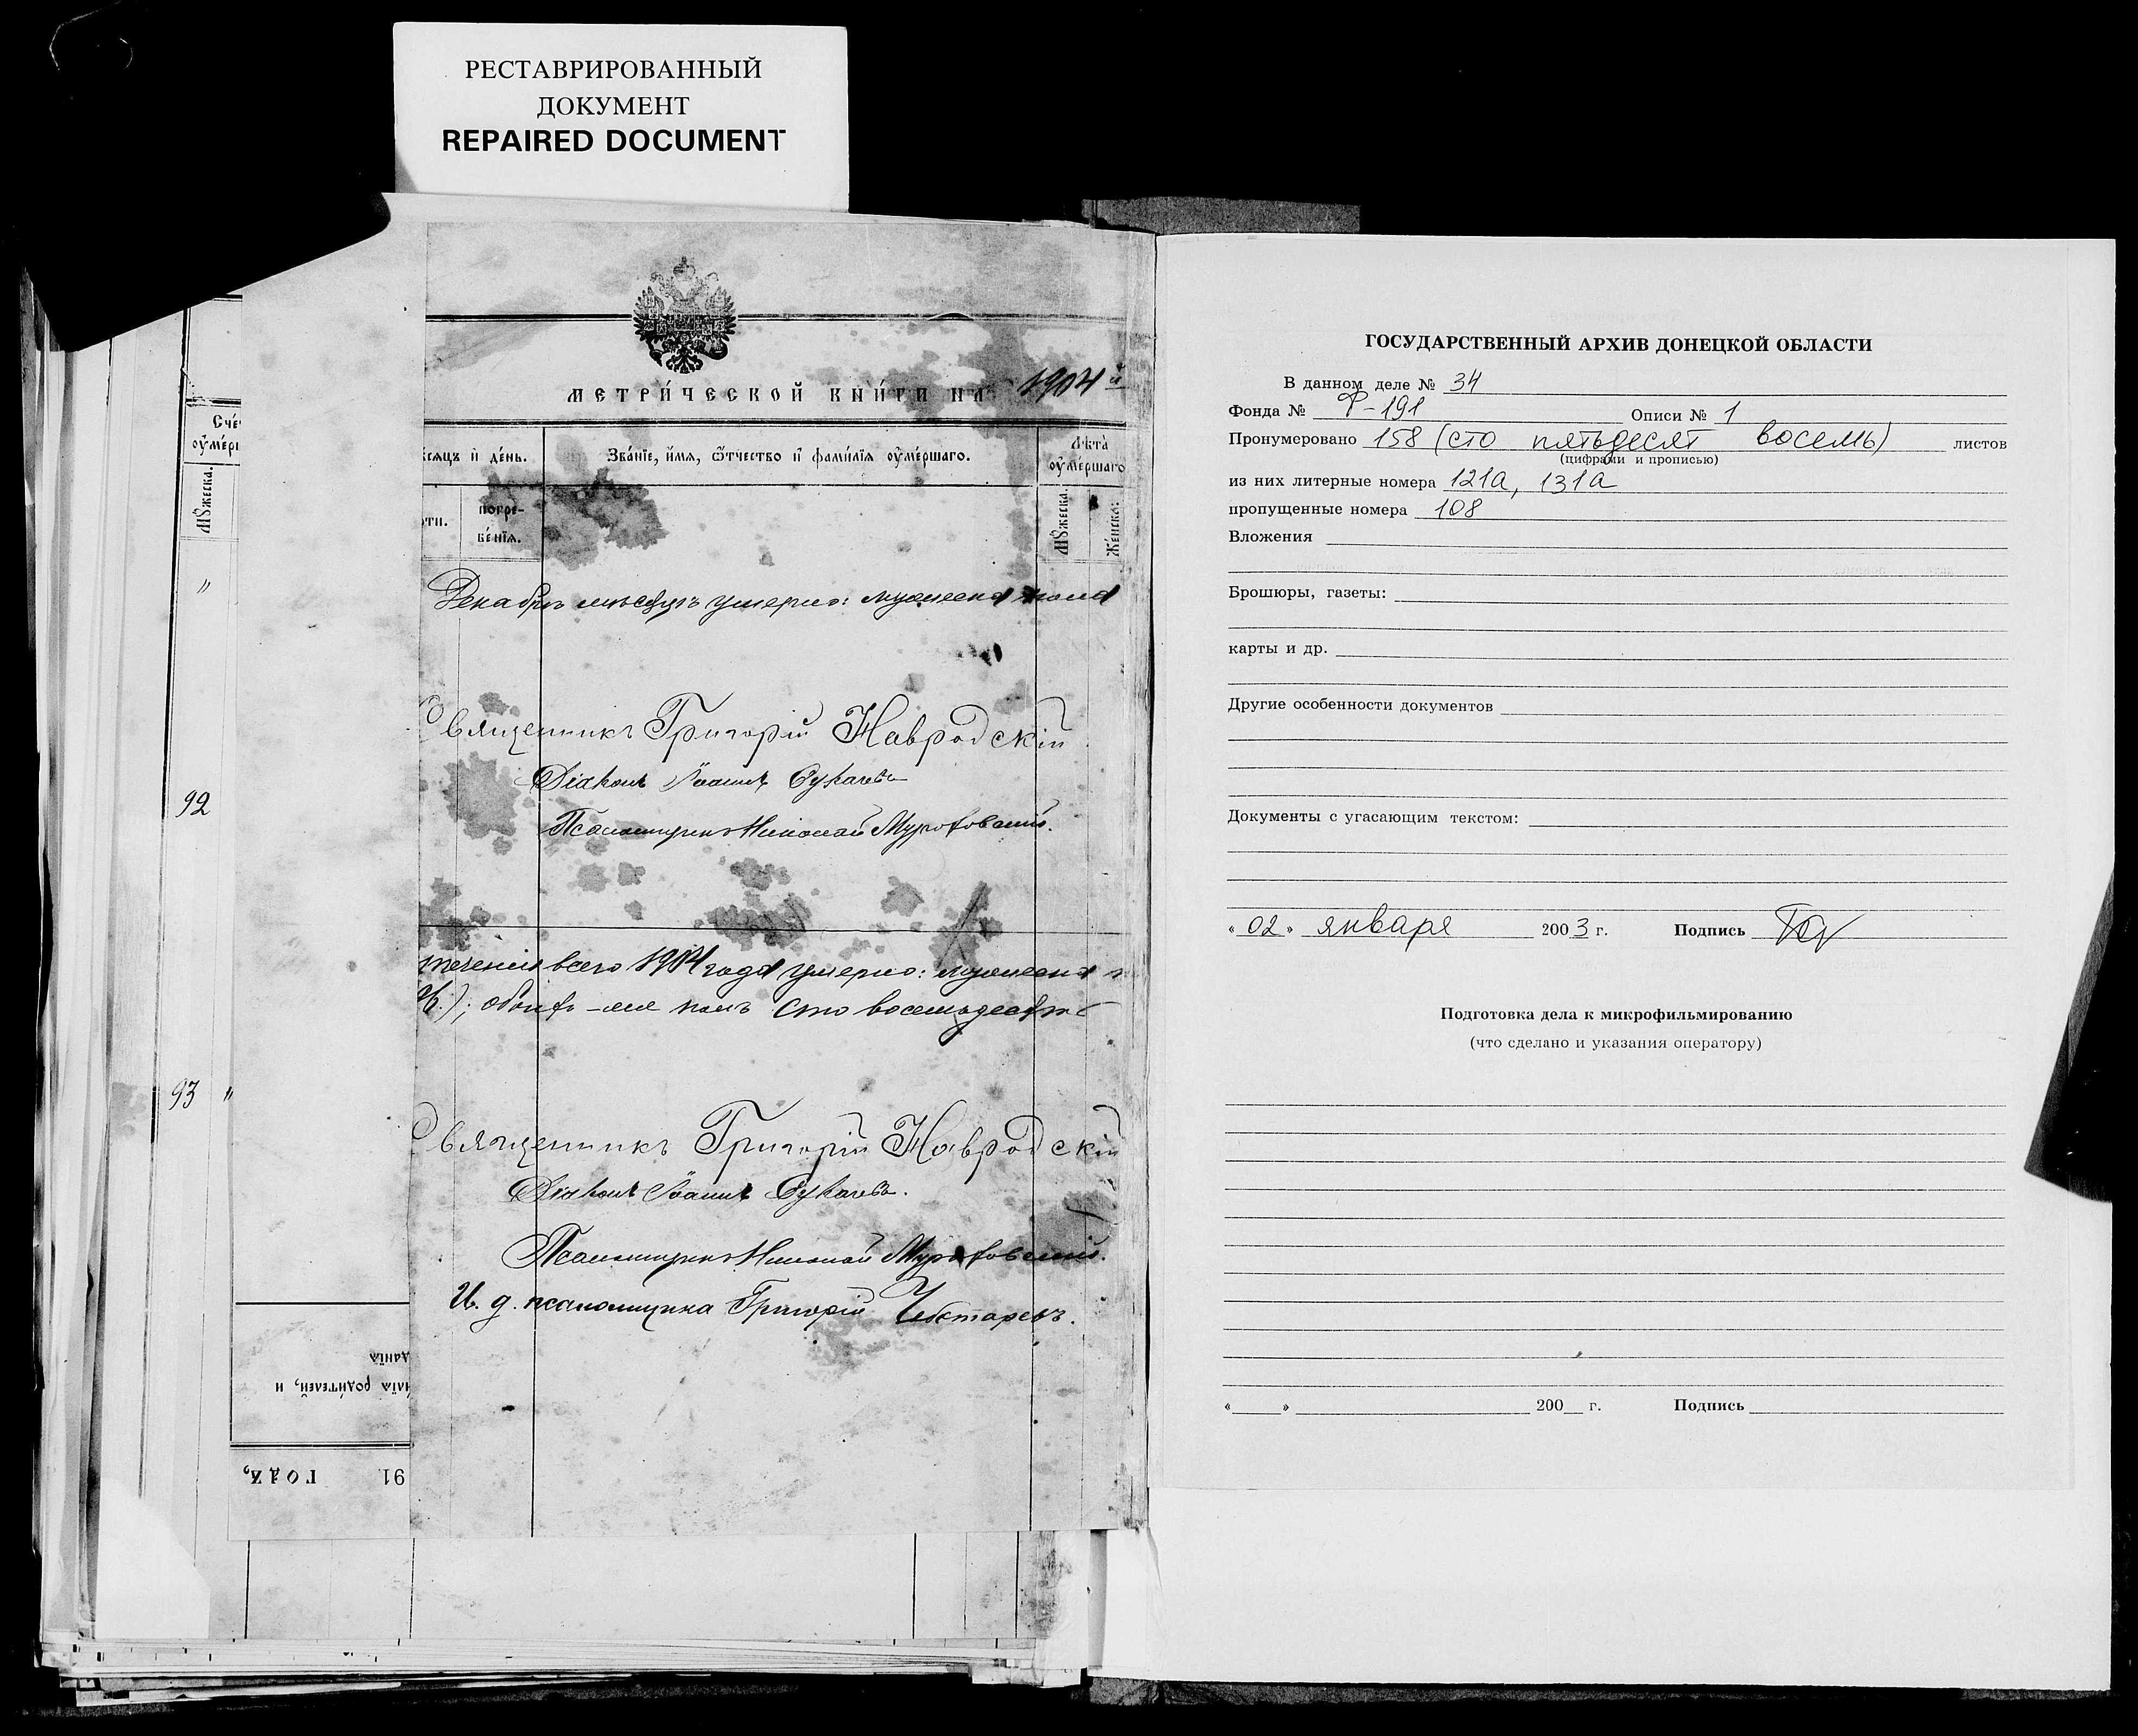 РЕСТАВРИРОВАННЫЙ
ДОКУМЕНТ
REPAIRED DOCUMENT
МЕТРИ́ЧЕСКОЙ КНИ́ГИ НА 1904 й
Сче́
оу҆ме́рш
Мꙋжеска.
"
92
93 "
ѣсяцъ и҆ де́нь.
Зва́нїе, и҆́мя, ѻ҆́тчество и҆ фами́лїя оу҆ме́ршаго.
Лѣта̀
оу҆ме́ршаго
рти.
погре-
бе́нїя.
Мꙋжеска.
Же́нска:
Декабрѣ мѣсяцѣ умерло: мужеска пола
Священникъ Григорій Навродскій
Діаконъ Іоаннъ
Псаломщикъ Николай
теченіи всего 1904 года умерло: мужеска
обоего пола сто восемьдесят
Священникъ Григорій Навродскій
Діаконъ Іоаннъ
Псаломщикъ Николай
И. д. псаломщика Григорій
да́нїя
и́лїя роди́телей, и
91 го́дъ,
ГОСУДАРСТВЕННЫЙ АРХИВ ДОНЕЦКОЙ ОБЛАСТИ
В данном деле № 34
Фонда № Ф-191 Описи № 1
Пронумеровано 158 (сто пятьдесят восемь) листов
(цифрами и прописью)
из них литерные номера 121а, 131а
пропущенные номера 108
Вложения
Брошюры, газеты:
карты и др.
Другие особенности документов
Документы с угасающим текстом:
« 02 » января 2003 г. Подпись
Подготовка дела к микрофильмированию
(что сделано и указания оператору)
« » 200 г. Подпись